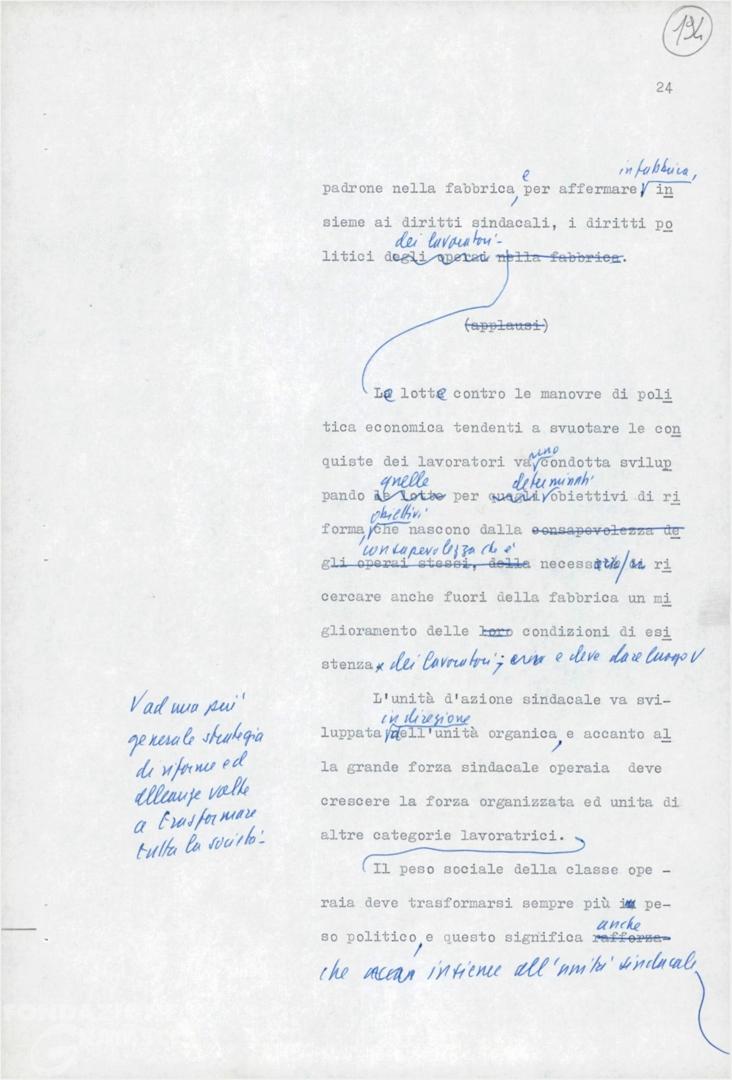 194
24
in fabbrica,
e
padrone nella fabbrica, per affermare in
sieme ai diritti sindacali, i diritti po
dei lavoratori.
litici degli operai nella fabbrica.
(applausi)
Le lotte contro le manovre di poli
tica economica tendenti a svuotare le con
quiste dei lavoratori vanno condotta svilup
quelle determinati
pando le lotte per quegli obiettivi di ri
obiettivi
forma, che nascono dalla consapevolezza de
consapevolezza che è
gli operai stessi, della necessario ri
cercare anche fuori della fabbrica un mi
glioramento delle loro condizioni di esi
stenza dei lavoratori; e deve dare luogo V
L'unità d'azione sindacale va svi-
in direzione
luppata dell'unità organica, e accanto al
la grande forza sindacale operaia deve
crescere la forza organizzata ed unita di
altre categorie lavoratrici.
V ad una più
generale strategia
di riforme ed
alleanze volte
a trasformare
tutta la società.
Il peso sociale della classe ope -
raia deve trasformarsi sempre più in pe-
anche
so politico, e questo significa rafforza-
che insieme all'unità sindacale
FONDAZIONE
GRAMSCI